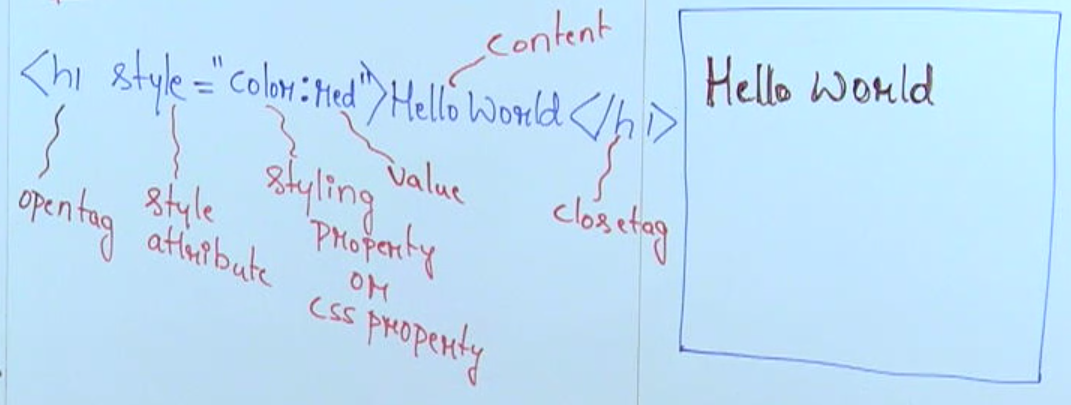 content
<h1 style="color:red">Hello World</h1>
Hello World
opentag
style
attribute
styling
property
or
css property
value
closetag